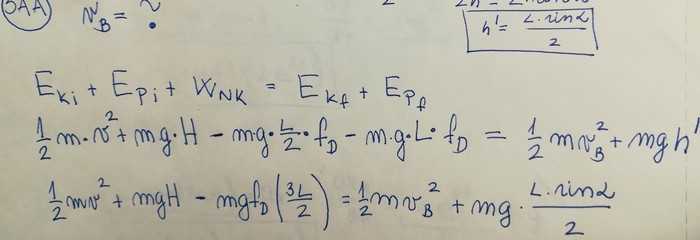 v_B = ?
h' = L·sinα / 2
E_Ki + E_Pi + W_NK = E_Kf + E_Pf
1/2 m·v² + mg·H - mg·L/2·f_D - m·g·L·f_D = 1/2 m v_B² + mgh'
1/2 mv² + mgH - mgf_D (3L/2) = 1/2 m v_B² + mg · L·sinα / 2